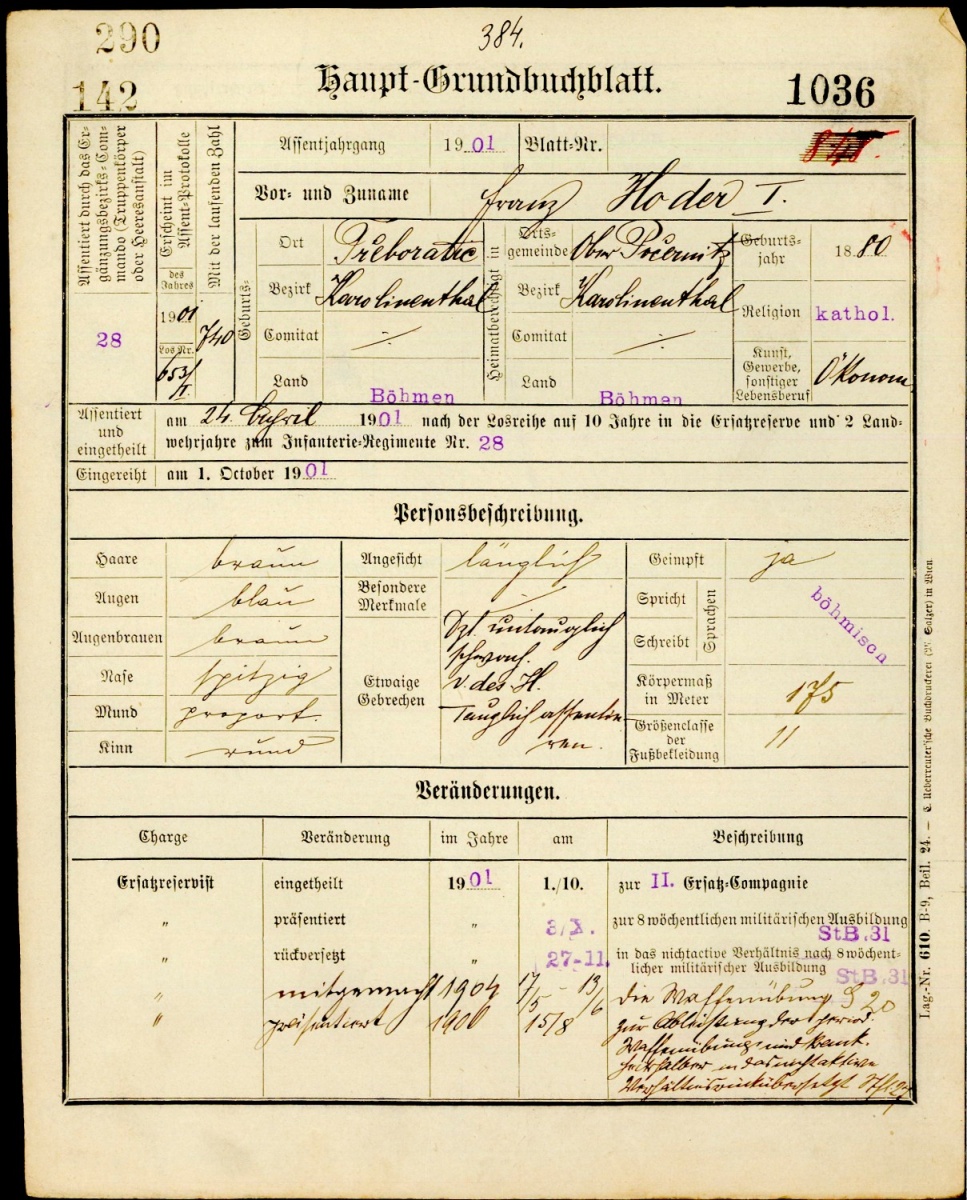 290
384.
142
Haupt-Grundbuchblatt.
1036
Assentiert durch das Er-
gänzungsbezirks-Com-
mando (Truppenkörper
oder Heeresanstalt)
28
Erscheint im
Assent-Protokolle
des
Jahres
1901
Los Nr.
653/II.
Mit der laufenden Zahl
740
Assentjahrgang 1901 Blatt-Nr.
Vor- und Zuname Franz Hoder I.
Geburts-
Ort Třeboratic
Bezirk Karolinenthal
Comitat ÷
Land Böhmen
Heimatberechtigt in
Orts-
gemeinde Ober Počernitz
Bezirk Karolinenthal
Comitat ÷
Land Böhmen
Geburts-
jahr 1880
Religion kathol.
Kunst,
Gewerbe,
sonstiger
Lebensberuf Ökonom
Assentiert
und
eingetheilt
am 24. April 1901 nach der Losreihe auf 10 Jahre in die Ersatzreserve und 2 Land-
wehrjahre zum Infanterie-Regimente Nr. 28
Eingereiht am 1. October 1901
Personsbeschreibung.
Haare braun
Augen blau
Augenbrauen braun
Nase spitzig
Mund proport.
Kinn rund
Angesicht länglich
Besondere
Merkmale ÷
Etwaige
Gebrechen
Dzt. untauglich
schwach.
V. des H.
Tauglich assentie-
ren.
Geimpft ja
Spricht
Schreibt
Sprachen
böhmisch
Körpermaß
in Meter 175
Größenclasse
der
Fußbekleidung 11
Veränderungen.
Charge Veränderung im Jahre am Beschreibung
Ersatzreservist eingetheilt 1901 1./10. zur II. Ersatz-Compagnie
" präsentiert " 3/X. zur 8 wöchentlichen militärischen Ausbildung
StB.31
" rückversetzt " 27-11. in das nichtactive Verhältnis nach 8 wöchent-
licher militärischer Ausbildung StB.31
" mitgemacht 1904 17/5 - 13/6 die Waffenübung § 20
" präsentiert 1906 15/8 zur Ableistung der period.
Waffenübung und krank-
heitshalber in das nichtaktive
Verhältnis rückübersetzt
Lag.-Nr. 610. B-9, Beil. 24. — C. Ueberreuter'sche Buchdruckerei (M. Salzer) in Wien.